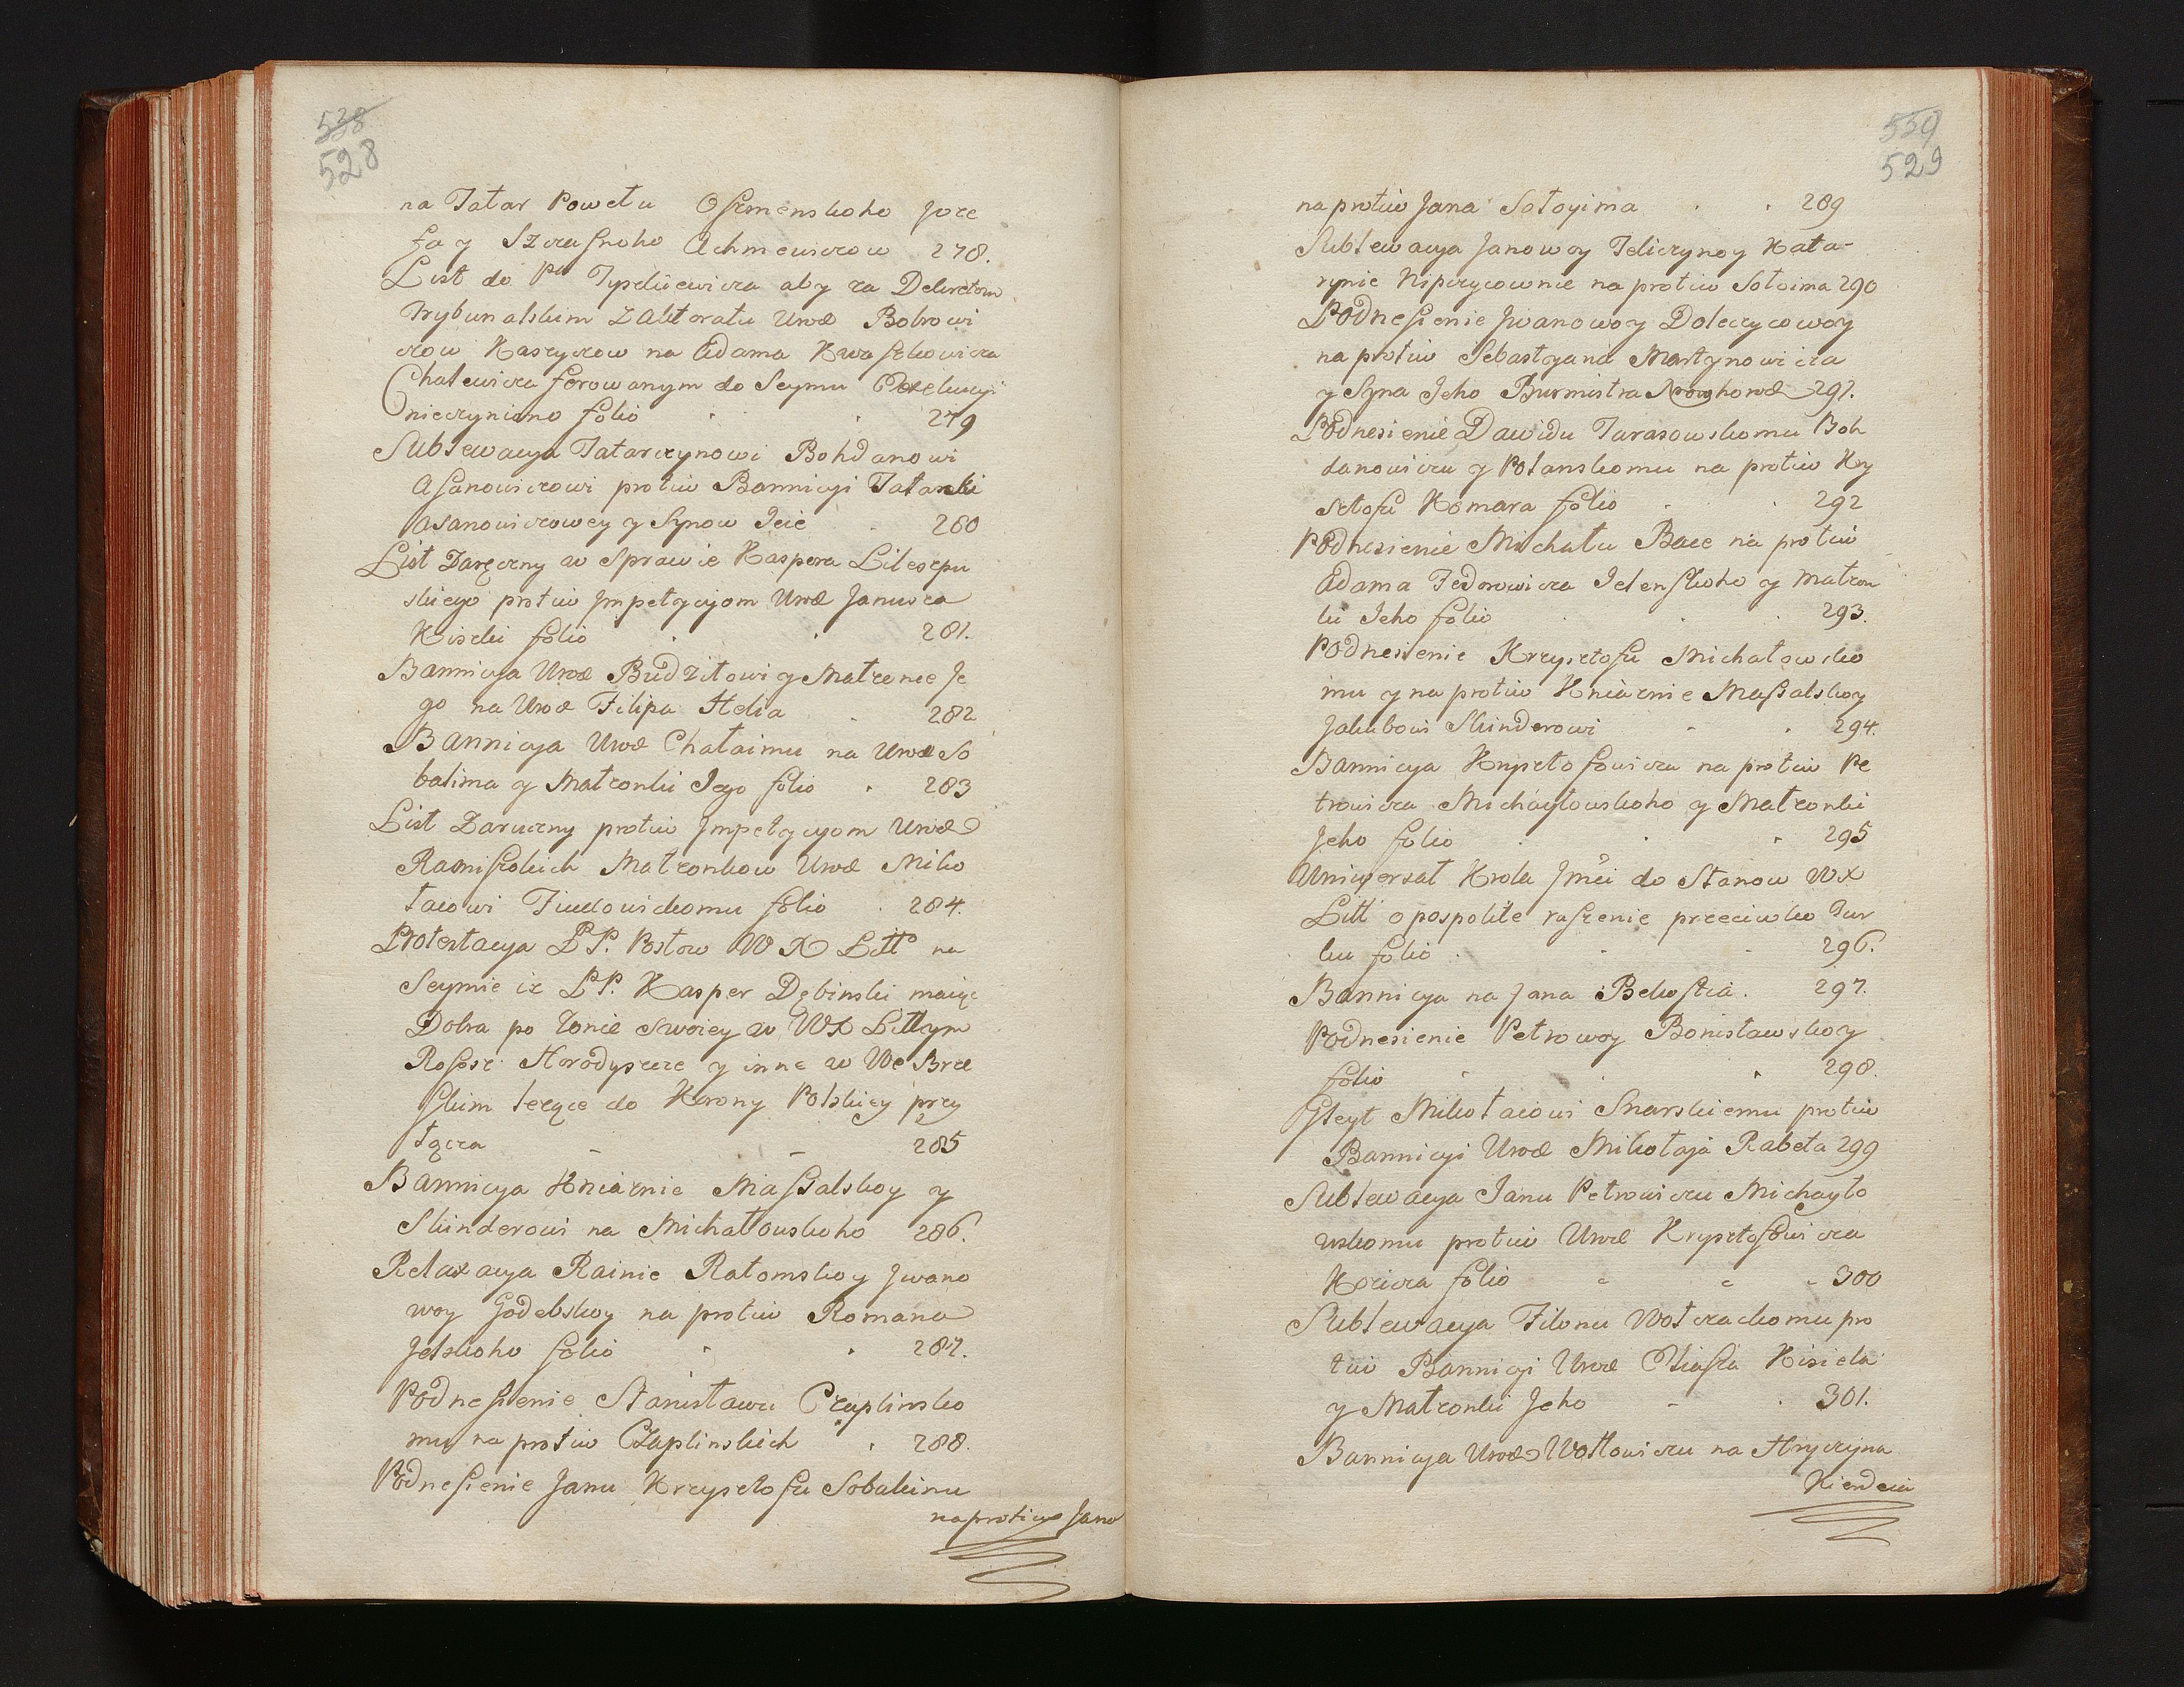 538
528
na Tatar Powetu Oszmenskoho Joze
fa y Szczasnoho Achmewiczow 278.
List do Pa Typelkiewicza aby za Dekretem
Trybunalskim z Aktoratu Urod Bobrowi
czow Kaszyczow na Adama Kwaszkowicza
Chalewicza ferowanym do Seymu Exekucyi
nieczyniono folio 279
Sublewacya Tatarzynowi Bohdanowi
Asanowiczowi protiw Bannicyi Tatarki
Asanowiczowey y Synow Jeie 280
List Zaręczny w Sprawie Kaspera Lilesepu
skiego protiw Impetycyom Urod Janusza
Kiszki folio 281.
Bannicya Urod Budziłowi y Małżence Je
go na Urod Filipa Helia 282
Bannicya Urod Chałaimu na Urod So
bakima y Małżonki Jego folio 283
List Zaruczny protiw Impetycyom Urod
Rawiskich Małżonkow Urod Miko
łaiowi Fiedowickomu folio 284.
Protestacya PP. Posłow W X Litt na
Seymie iż PP. Kasper Dębinski maiąc
Dobra po żonie swoiey w WX Littym
Rossosz Horodyszcze y inne w We Brze
skim leżące do Korony Polskiey przy
łącza 285
Bannicya Kniaznie Massalskoy y
Skinderowi na Michałouskoho 286.
Relaxacya Rainie Ratomskoy Jwano
woy Godebskoy na protiw Romana
Jelskoho folio 287.
Podnesienie Stanisławu Czaplinsko
mu na protiw Czaplinskich 288.
Podnesienie Janu Krzysztofu Sobakinu
na protiw Jana
539
529
na protiw Jana Sołoyima 289
Sublewacya Janowoy Teliczynoy Kata-
rynie Nipczycownie na protiw Sołoima 290
Podnesienie Jwanowoy Doleczycowoy
na protiw Sebastyana Martynowicza
y Syna Jeho Burmistra 291.
Podnesienie Dawidu Tarasowskomu Boh
danowiczu y Polanskomu na protiw Kry
sztofu Komara folio 292
Podnesienie Michału Bace na protiw
Adama Fedorowicza Jelenskoho y Małżon
ki Jeho folio 293.
Podnesienie Krzysztofu Michałowsko
mu y na protiw Kniaznie Massalskoy
Jakubowi Skinderowi 294.
Bannicya Krysztofowicza na protiw Pe
trowicza Michayłouskoho y Małżonki
Jeho folio 295
Uniwersał Krola Jmci do Stanow W X
Litt o pospolite ruszenie przeciwko Tur
ku folio 296.
Bannicya na Jana Bekoszta. 297.
Podnesienie Petrowoy Bonisławskoy
folio 298.
Gleyt Mikołaiowi Snarskiemu protiw
Bannicyi Urod Mikołaja Rabeta 299
Sublewacya Janu Petrowiczu Michayło
wskomu protiw Urod Krysztofowicza
Kozicza folio 300
Sublewacya Filonu Wołczackomu pro
tiw Bannicyi Urod Eliasza Kisiela
y Małżonki Jeho 301.
Bannicya Urod Wołłowiczu na Hryczyna
Kierdeia